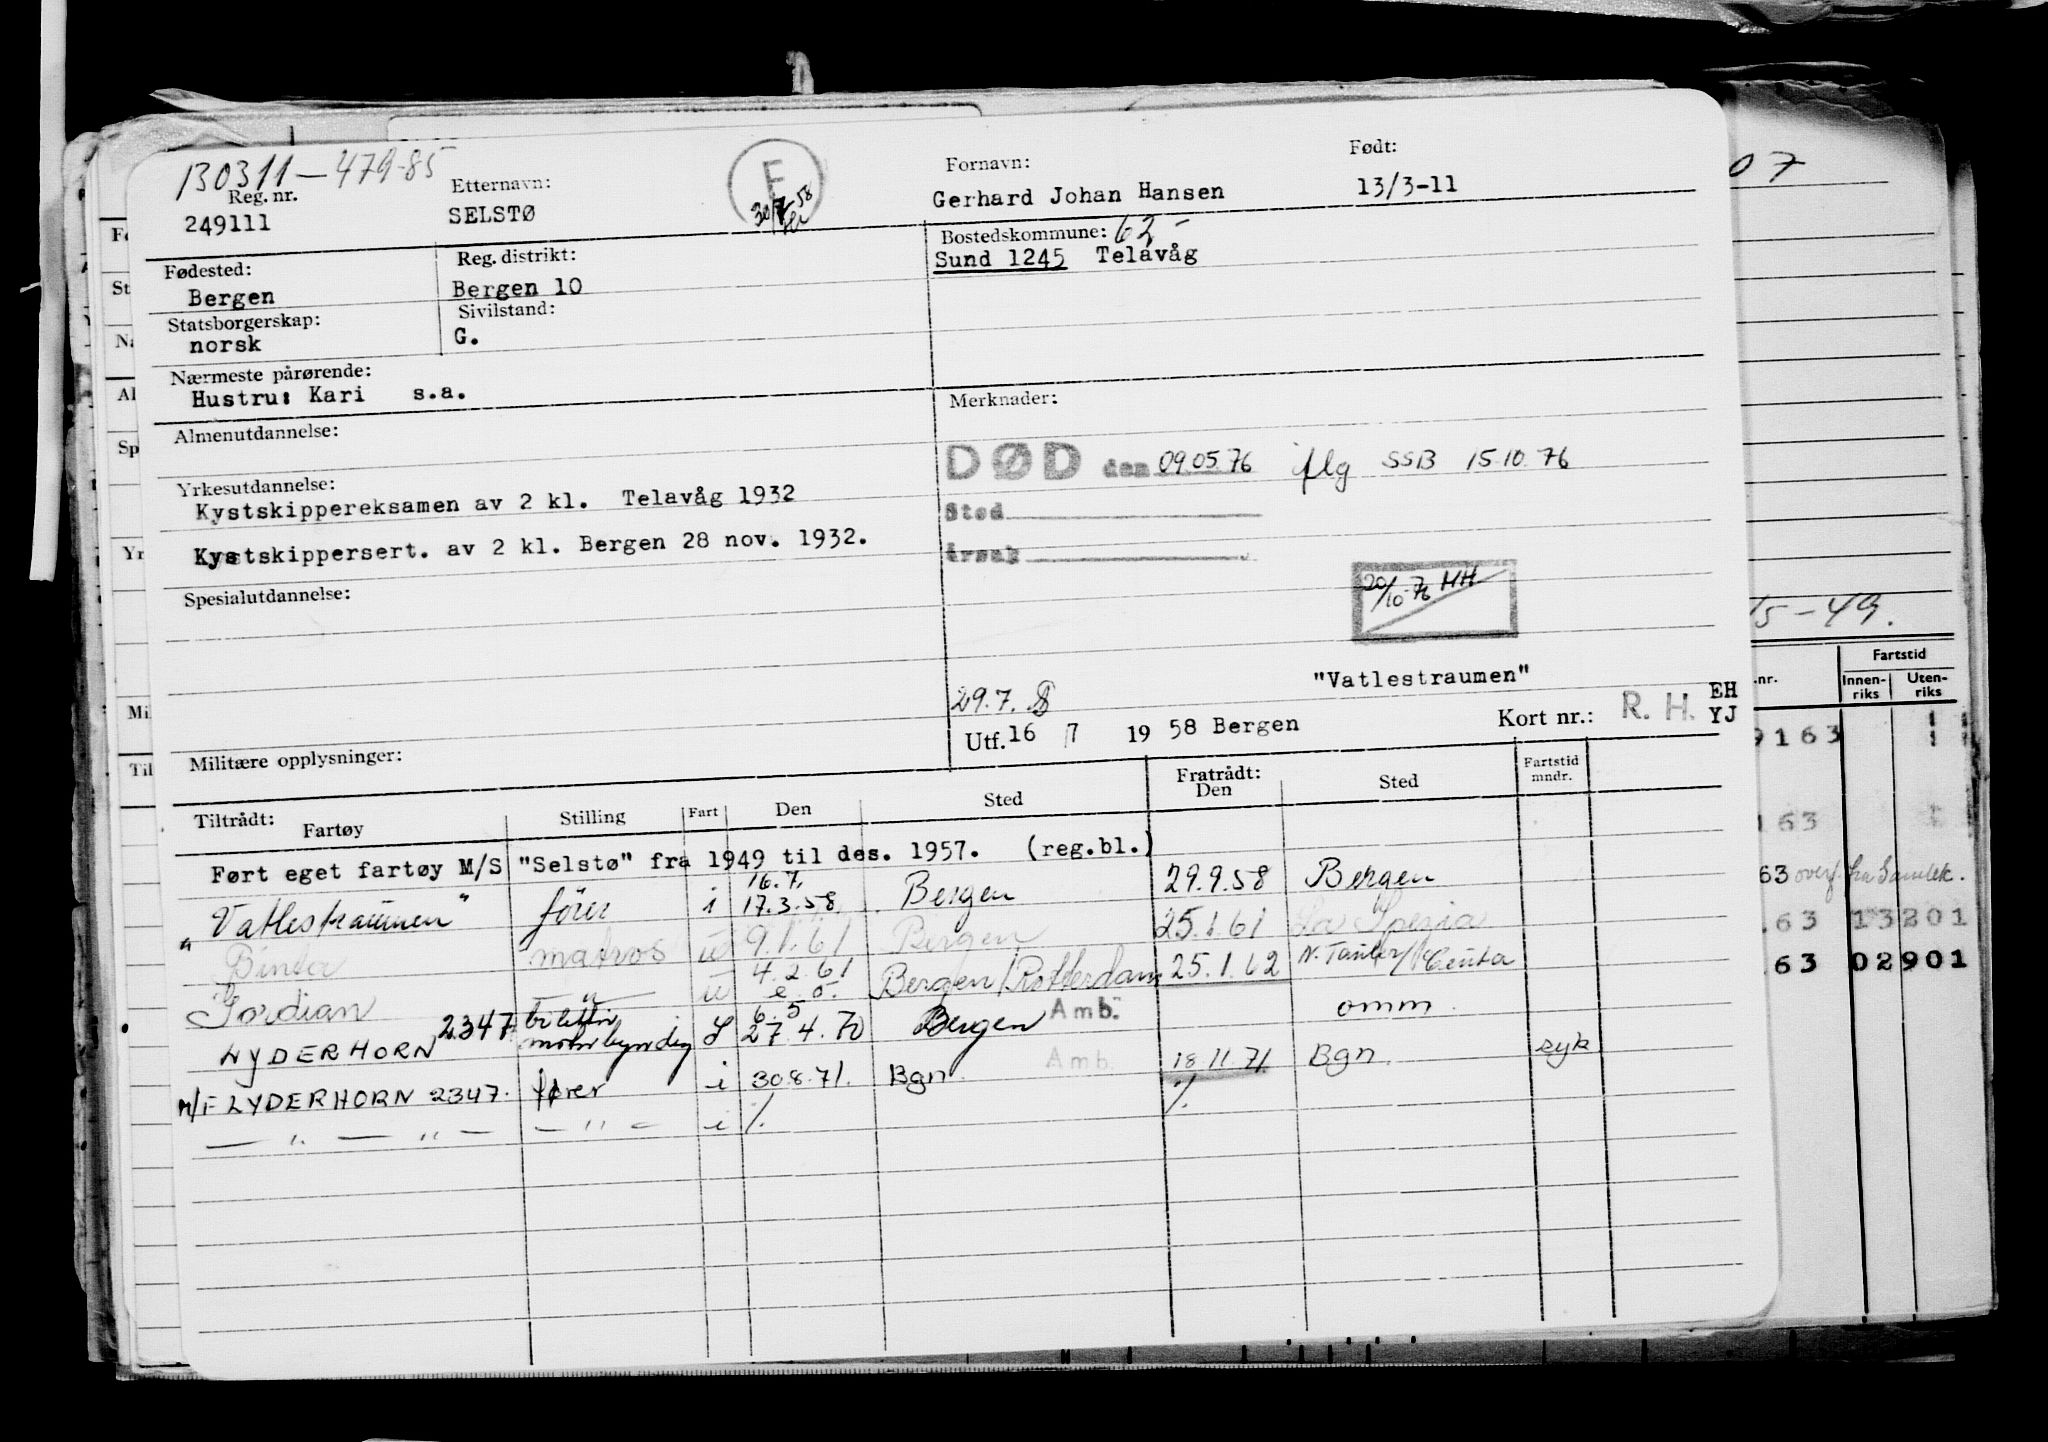 130311-479-85
Reg. nr. Etternavn: Fornavn: Født:
249111 SELSTØ F 30/7-58 Gerhard Johan Hansen 13/3-11
Fødested: Reg. distrikt: Bostedskommune: 62-
Bergen Bergen 10 Sund 1245 Telavåg
Statsborgerskap: Sivilstand:
norsk G.
Nærmeste pårørende:
Hustru: Kari s.a.
Almenutdannelse: Merknader:
DØD den 09.05.76 iflg SSB 15.10.76
Yrkesutdannelse:
Kystskippereksamen av 2 kl. Telavåg 1932
Sted
Kystskippersert. av 2 kl. Bergen 28 nov. 1932.
årsak
20/10-76 HH
Spesialutdannelse:
"Vatlestraumen"
29.7.
Utf. 16 /7 19 58 Bergen Kort nr.: R. H. EH YJ
Militære opplysninger:
Tiltrådt: Fartøy Stilling Fart Den Sted Fratrådt: Den Sted Fartstid mndr.
Ført eget fartøy M/S "Selstø" fra 1949 til des. 1957. (reg.bl.)
"Vatlestraumen" fører i 16.7. 17.3.58. Bergen 29.9.58 Bergen
Binta matros u 9.1.61 Bergen 25.1.61 La Spezia
Gordian " u 4.2.61 e.o. Bergen/Rotterdam 25.1.62 Ceuta
LYDERHORN 2347 L 6.5 27.4.70 Bergen Amb. omm.
M/F LYDERHORN 2347. fører i 30.8.71. Bgn. Amb. 18.11.71. Bgn. syk
— " — " — — " — i %. %.
07
15-49.
Fartstid
.nr. Innen-riks Uten-riks
9163
163
63 overf. fra Samlek.
.63 13201
.63 02901